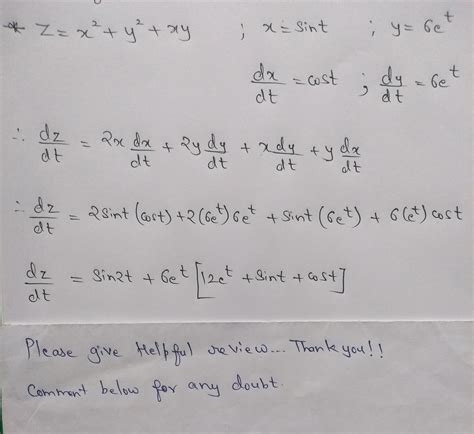 * Z = x² + y² + xy ; x = sint ; y = 6e^t
dx/dt = cost ; dy/dt = 6e^t
∴ dz/dt = 2x dx/dt + 2y dy/dt + x dy/dt + y dx/dt
∴ dz/dt = 2sint (cost) + 2(6e^t) 6e^t + sint (6e^t) + 6(e^t) cost
dz/dt = sin2t + 6e^t [12e^t + sint + cost]
Please give Helpful review... Thank you!!
Comment below for any doubt.